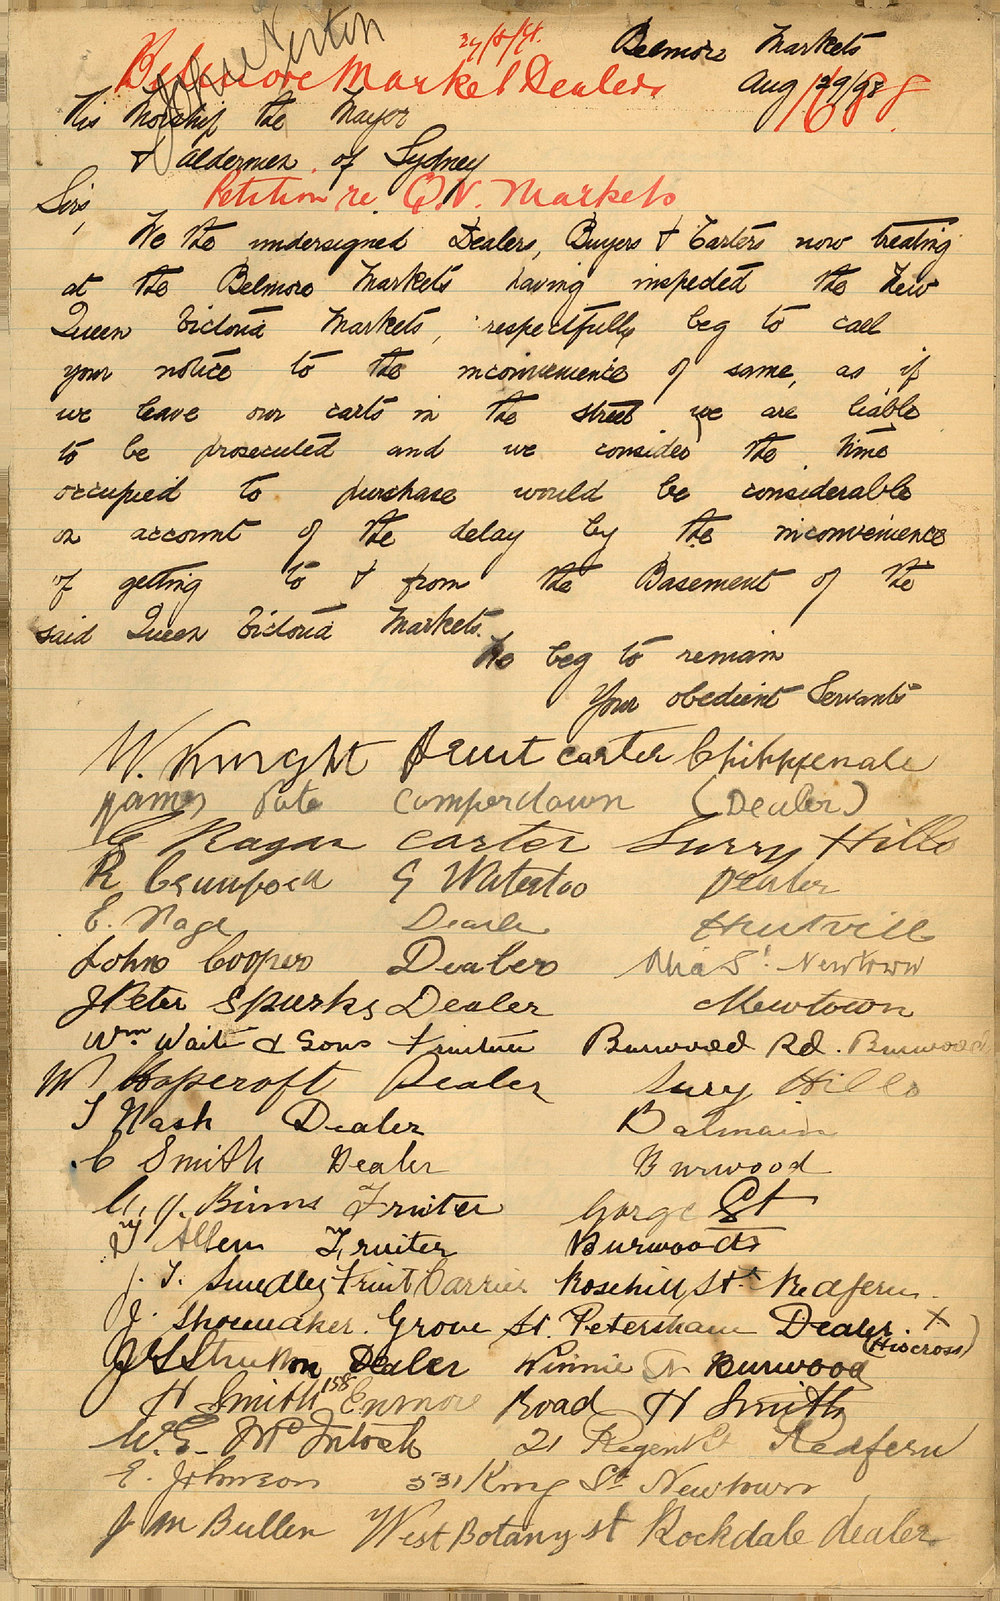 John Norton
Belmore Markets
Belmore Market Dealers
Aug 29/98
1688
His Worship the Mayor
& Aldermen of Sydney
Petition re Q.V. Markets
Sirs,
We the undersigned Dealers, Buyers & Carters now treating
at the Belmore Markets having inspected the New
Queen Victoria Markets, respectfully beg to call
your notice to the inconvenience of same, as if
we leave our carts in the street we are liable
to be prosecuted and we consider the time
occupied to purchase would be considerable
on account of the delay by the inconvenience
of getting to & from the Basement of the
said Queen Victoria Markets.
We beg to remain
Your obedient Servants
W. Knight Fruit carter Chippenale
James Pate Camperdown (Dealer)
E Ragan Carter Surry Hills
R Waterloo Dealer
E. Page
John Cooper Dealer St. Newtown
J Peter Sparks Dealer Newtown
Wm. Waite & Sons Fruiterer Burwood Rd. Burwood
W Hapcroft Dealer Surry Hills
T Nash Dealer Balmain
C Smith Dealer Burwood
J. Binns Fruiter Gorge St
Allen Fruiter Burwood
J. T. Smedley Fruit Carrier Rosehill St. Redfern.
J. Shoemaker. Grove St. Petersham Dealer. X
(His cross)
Dealer Burwood
H Smith 158 Enmore Road H Smith
W. E. McIntosh 21 Regent St Redfern
E. Johnson 331 King St Newtown
J M Bullen West Botany st Rockdale dealer